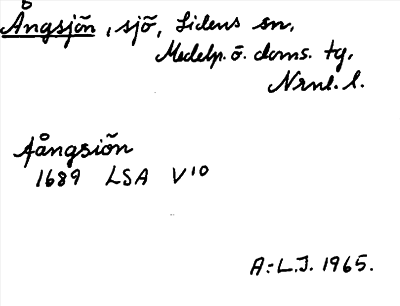 Ångsjön, sjö, Lidens sn,
Medelp. ö. doms. tg.
Nrnl. l.
Aångsiön
1689 LSA V¹⁰
A:L.J. 1965.